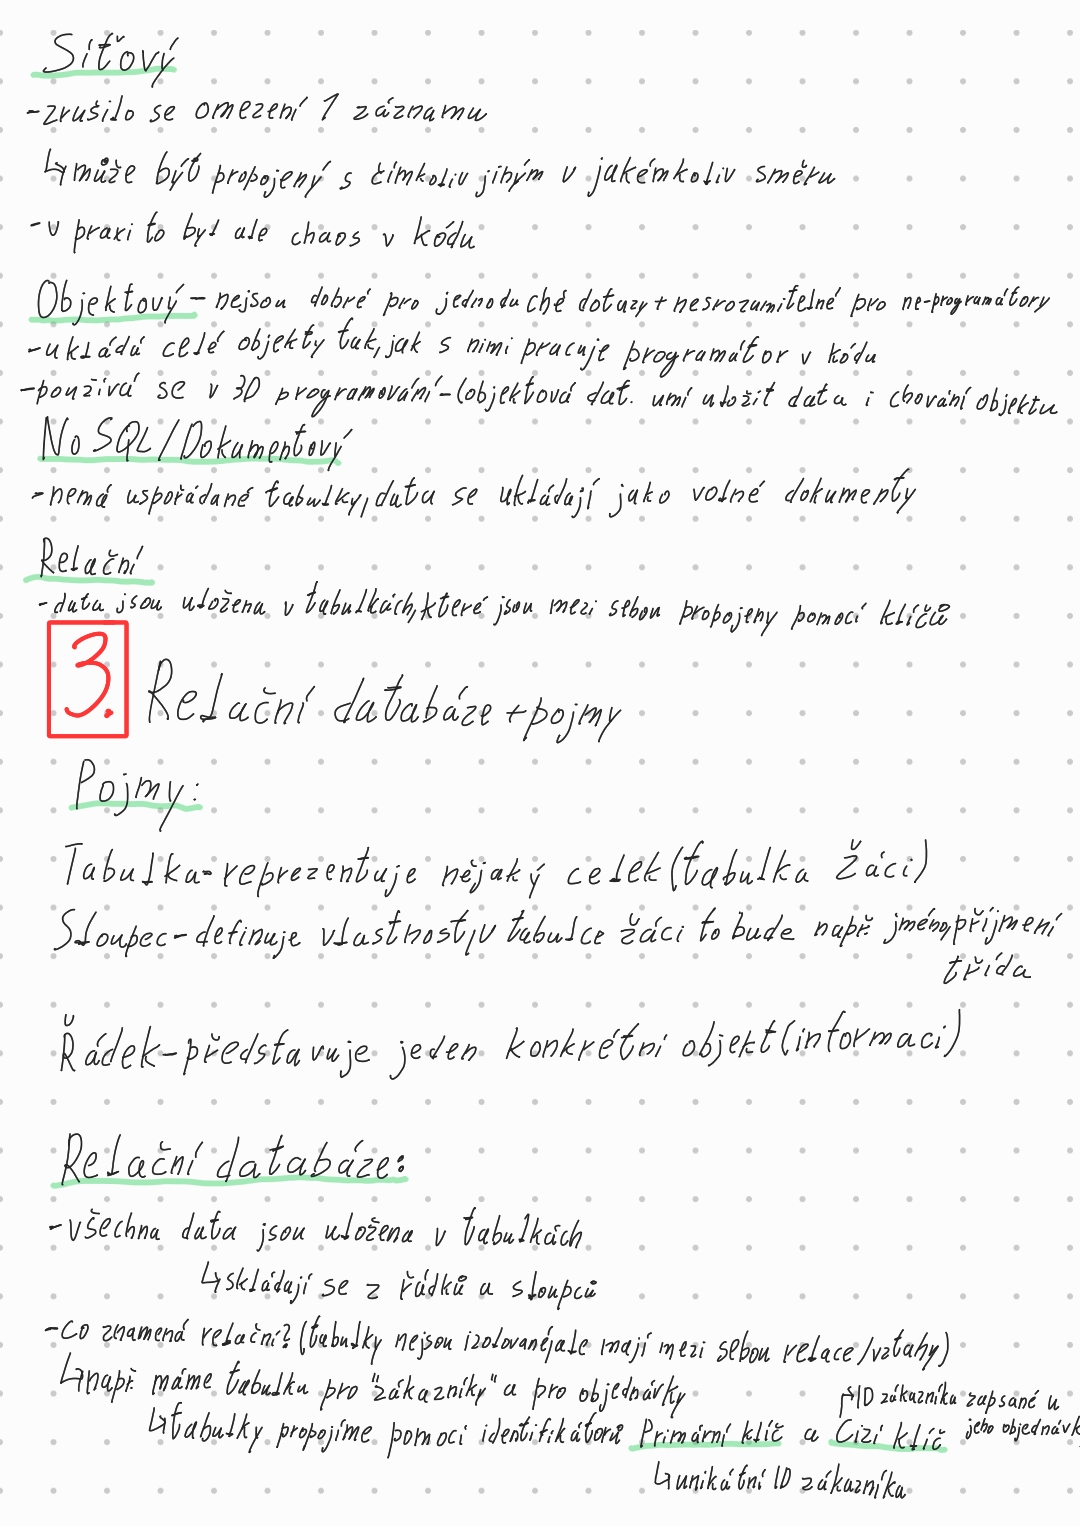 Síťový
-zrušilo se omezení 1 záznamu
↳může být propojený s čímkoliv jiným v jakémkoliv směru
-v praxi to byl ale chaos v kódu
Objektový - nejsou dobré pro jednoduché dotazy + nesrozumitelné pro ne-programátory
-ukládá celé objekty tak, jak s nimi pracuje programátor v kódu
-používá se v 3D programování-(objektová dat. umí uložit data i chování objektu
No SQL/Dokumentový
-nemá uspořádané tabulky, data se ukládají jako volné dokumenty
Relační
-data jsou uložena v tabulkách, které jsou mezi sebou propojeny pomocí klíčů
3. Relační databáze + pojmy
Pojmy:
Tabulka-reprezentuje nějaký celek (tabulka Žáci)
Sloupec-definuje vlastnost, v tabulce žáci to bude např. jméno, příjmení
třída
Řádek-představuje jeden konkrétní objekt (informaci)
Relační databáze:
-všechna data jsou uložena v tabulkách
↳skládají se z řádků a sloupců
-Co znamená relační? (tabulky nejsou izolované, ale mají mezi sebou relace/vztahy)
↳např. máme tabulku pro "zákazníky" a pro objednávky
↱ID zákazníka zapsané u
jeho objednávk
↳tabulky propojíme pomocí identifikátorů Primární klíč a Cizí klíč
↳unikátní ID zákazníka